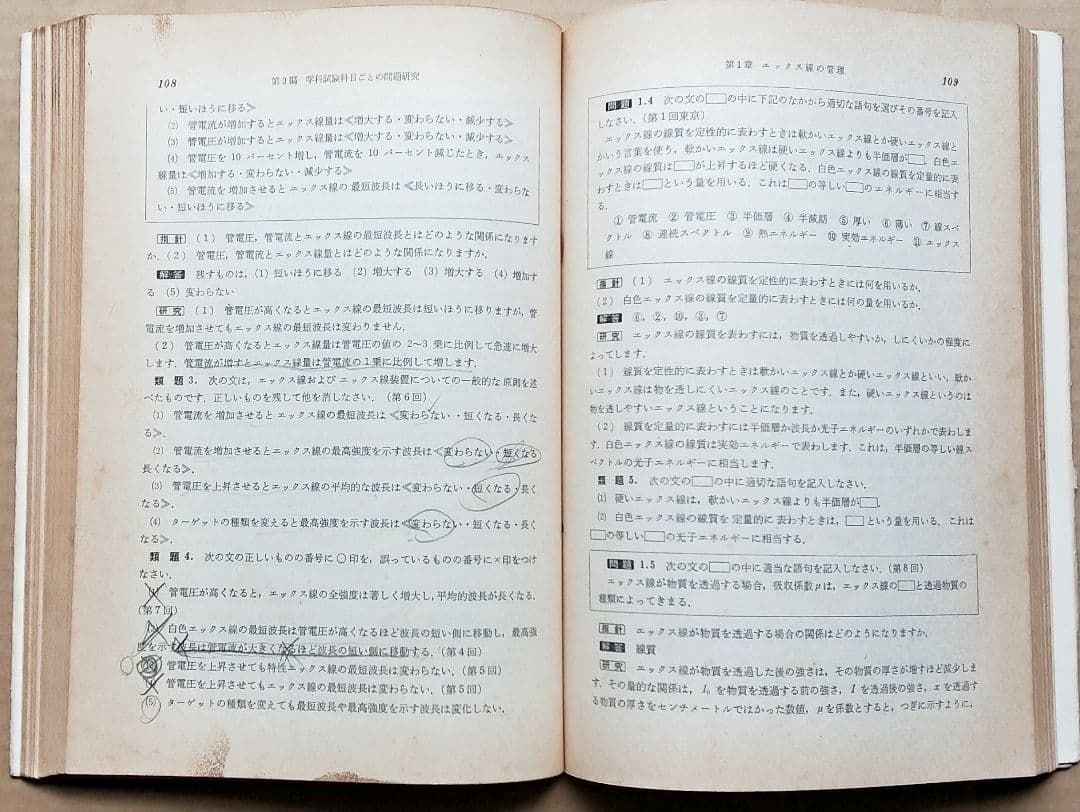 108
第3編 学科試験科目ごとの問題研究
い・短いほうに移る≫
(2) 管電流が増加するとエックス線量は≪増大する・変わらない・減少する≫
(3) 管電圧が増加するとエックス線量は≪増大する・変わらない・減少する≫
(4) 管電圧を 10 パーセント増し，管電流を 10 パーセント減じたとき，エックス
線量は≪増加する・変わらない・減少する≫
(5) 管電流を増加させるとエックス線の最短波長は≪長いほうに移る・変わらな
い・短いほうに移る≫
指針 (1) 管電圧，管電流とエックス線の最短波長とはどのような関係になります
か．(2) 管電圧，管電流とエックス線量とはどのような関係になりますか．
解答 残すものは，(1) 短いほうに移る (2) 増大する (3) 増大する (4) 増加す
る (5) 変わらない
研究 (1) 管電圧が高くなるとエックス線の最短波長は短いほうに移りますが，管
電流を増加させてもエックス線の最短波長は変わりません．
(2) 管電圧が高くなるとエックス線量は管電圧の値の 2〜3 乗に比例して急速に増大
します．管電流が増すとエックス線量は管電流の1乗に比例して増します．
類題 3． 次の文は，エックス線およびエックス線装置についての一般的な原則を述
べたものです．正しいものを残して他を消しなさい．(第6回)
(1) 管電流を増加させるとエックス線の最短波長は≪変わらない・短くなる・長くな
る≫．
(2) 管電流を増加させるとエックス線の最高強度を示す波長は≪変わらない・短くなる
長くなる≫．
(3) 管電圧を上昇させるとエックス線の平均的な波長は≪変わらない・短くなる・長く
なる≫．
(4) ターゲットの種類を変えると最高強度を示す波長は≪変わらない・短くなる・長く
なる≫．
類題 4． 次の文の正しいものの番号に○印を，誤っているものの番号に×印をつけ
なさい．
(1) 管電圧が高くなると，エックス線の全強度は著しく増大し，平均的波長が長くなる．
(第7回)
白色エックス線の最短波長は管電圧が高くなるほど波長の短い側に移動し，最高強
度を示す波長は管電流が大きくなるほど波長の短い側に移動する．(第4回)
管電圧を上昇させても特性エックス線の最短波長は変わらない．(第5回)
管電圧を上昇させてもエックス線の最短波長は変わらない．(第5回)
(5) ターゲットの種類を変えても最短波長や最高強度を示す波長は変化しない．
第1章 エックス線の管理
109
問題 1.4 次の文の□の中に下記のなかから適切な語句を選びその番号を記入
しなさい．(第1回東京)
エックス線の線質を定性的に表わすときは軟かいエックス線とか硬いエックス線と
かいう言葉を使う，軟かいエックス線は硬いエックス線よりも半価層が□．白色エ
ックス線の線質は□が上昇するほど硬くなる．白色エックス線の線質を定量的に表
わすときは□という量を用いる．これは□の等しい□のエネルギーに相当す
る．
① 管電流 ② 管電圧 ③ 半価層 ④ 半減期 ⑤ 厚い ⑥ 薄い ⑦ 線スペ
クトル ⑧ 連続スペクトル ⑨ 熱エネルギー ⑩ 実効エネルギー ⑪ エックス
線
指針 (1) エックス線の線質を定性的に表わすときは何を用いるか．
(2) 白色エックス線の線質を定量的に表わすときには何の量を用いるか．
解答 ⑥，②，⑩，③，⑦
研究 エックス線の線質を表わすには，物質を透過しやすいか，しにくいかの程度に
よってします．
(1) 線質を定性的に表わすときは軟かいエックス線とか硬いエックス線といい，軟か
いエックス線は物を透しにくいエックス線のことです．また，硬いエックス線というのは
物を透しやすいエックス線ということになります．
(2) 線質を定量的に表わすには半価層か波長か光子エネルギーのいずれかで表わしま
す．白色エックス線の線質は実効エネルギーで表わします．これは，半価層の等しい線ス
ペクトルの光子エネルギーに相当します．
類題 5． 次の文の□の中に適切な語句を記入しなさい．
(1) 硬いエックス線は，軟かいエックス線よりも半価層が□．
(2) 白色エックス線の線質を定量的に表わすときは，□という量を用いる．これは
□の等しい□の光子エネルギーに相当する．
問題 1.5 次の文の□の中に適当な語句を記入しなさい．(第8回)
エックス線が物質を透過する場合，吸収係数μは，エックス線の□と透過物質の
種類によってきまる．
指針 エックス線が物質を透過する場合の関係はどのようになりますか．
解答 線質
研究 エックス線が物質を透過した後の強さは，その物質の厚さが増すほど減少しま
す．その量的な関係は，I₀ を物質を透過する前の強さ，I を透過後の強さ，x を透過す
る物質の厚さをセンチメートルではかった数値，μを係数とすると，つぎに示すように，